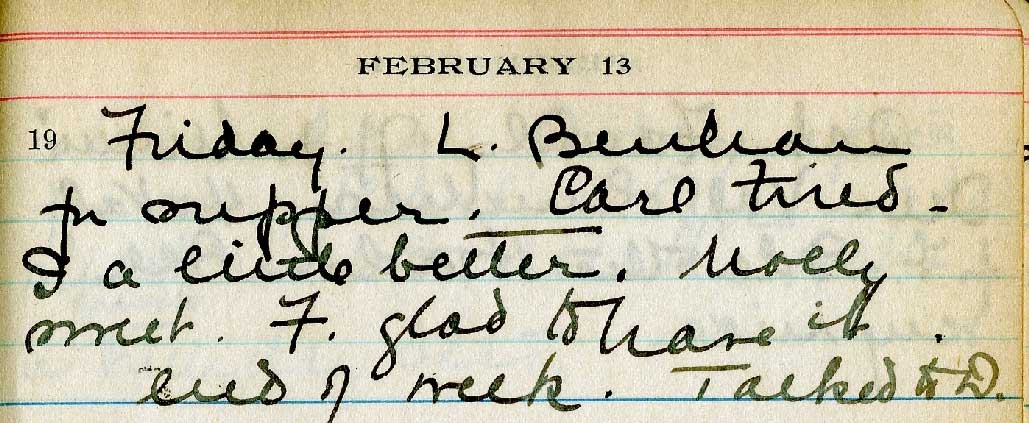 FEBRUARY 13
19 Friday. L. Benham
for supper. Carl tired -
I a little better. Molly
sweet. F. glad to have it
end of week. Talked to D.